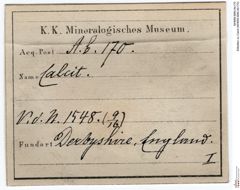 K. K. Mineralogisches Museum.
Acq. Post A. E. 170.
Name Calcit.
V. d. N. 1548.
Fundort Derbyshire, England.
I